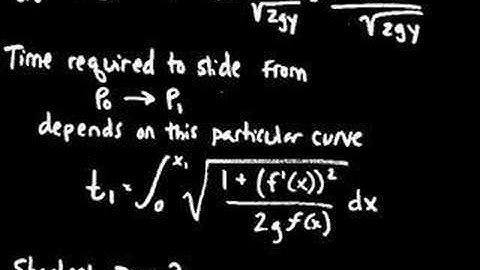 √2gy √2gy
Time required to slide from
P₀ → P₁
depends on this particular curve
t₁ = ∫₀^x₁ √((1 + (f'(x))²)/(2g f(x))) dx